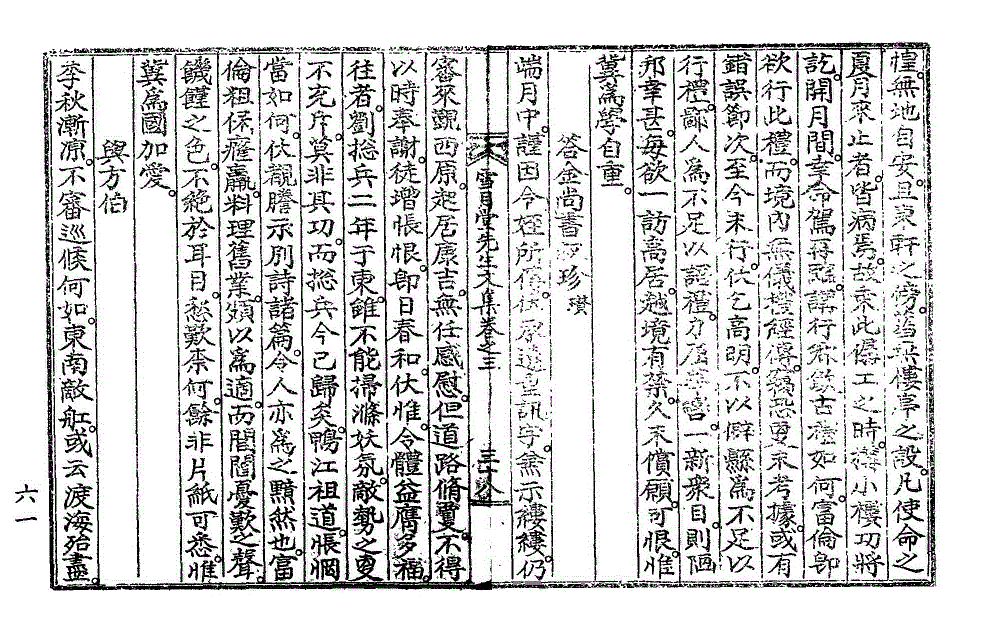 惶無地自安且東軒之傍當無樓亭之設凡使命之
夏月來止者皆病焉故乘此僝工之時搆小樓功將
訖開月間幸命駕再臨講行鄉飮古禮如何富倫卽
欲行此禮而境內無儀禮經傳竊恐更未考據或有
錯誤節次至今未行伏乞高明不以僻縣爲不足以
行禮鄙人爲不足以議禮力屈一新衆目則陋
邦幸甚每欲一訪离居越境有禁久未償願可恨惟
冀爲學自重
答金尙書珍瓚
端月中謹因令姪所傳伏承遠賜訊字兼示縷縷仍
雪月堂先生文集卷之三
審來覲西原起居康吉無任感慰但道路脩夐不得
以時奉謝徒增悵恨卽日春和伏惟令體益膺多福
往者劉摠兵二年于東雖不能掃滌妖氛敵勢之更
不充斥莫非其功而摠兵今已歸矣鴨江祖道悵惘
當如何伏覩謄示別詩諸篇令人亦爲之黯然也富
倫粗保癃羸料理舊業頗以爲適而閭閻憂歎之聲
饑饉之色不絶於耳目愁歎柰何餘非片紙可悉惟
冀爲國加愛
與方伯
季秋漸凉不審巡候何如東南敵舡或云渡海殆盡
六一